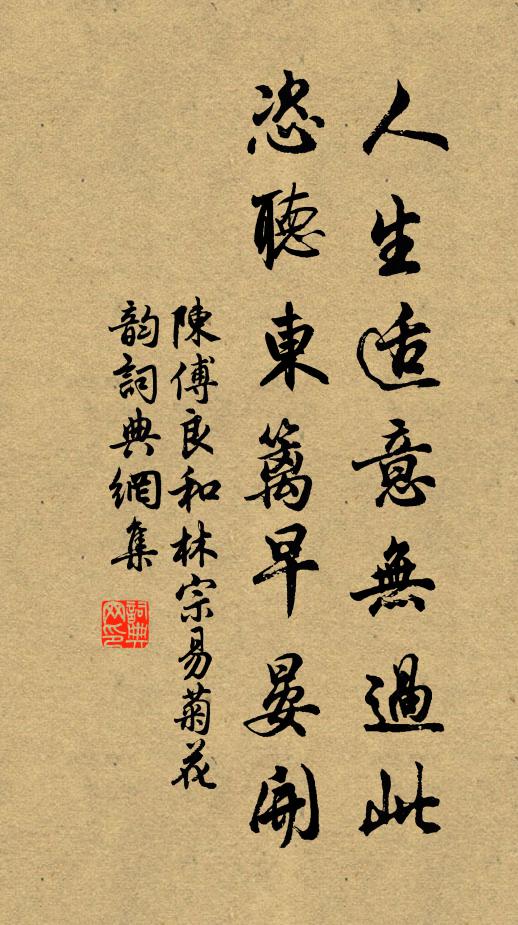 人生适意無過此
恣聽東籬早晏開
陳傅良和林宗易菊花
韵詞典網集
詞典網印